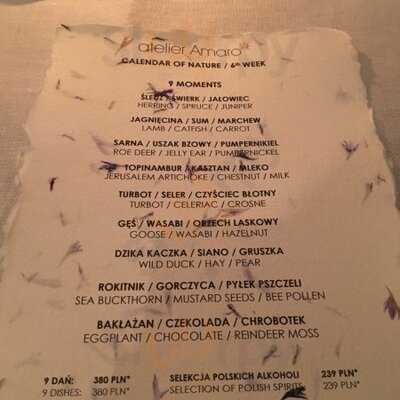 atelier Amaro
CALENDAR OF NATURE / 6th WEEK
9 MOMENTS
ŚLEDŹ / ŚWIERK / JAŁOWIEC
HERRING / SPRUCE / JUNIPER
JAGNIĘCINA / SUM / MARCHEW
LAMB / CATFISH / CARROT
SARNA / USZAK BZOWY / PUMPERNIKIEL
ROE DEER / JELLY EAR / PUMPERNICKEL
TOPINAMBUR / KASZTAN / MLEKO
JERUSALEM ARTICHOKE / CHESTNUT / MILK
TURBOT / SELER / CZYŚCIEC BŁOTNY
TURBOT / CELERIAC / CROSNE
GĘŚ / WASABI / ORZECH LASKOWY
GOOSE / WASABI / HAZELNUT
DZIKA KACZKA / SIANO / GRUSZKA
WILD DUCK / HAY / PEAR
ROKITNIK / GORCZYCA / PYŁEK PSZCZELI
SEA BUCKTHORN / MUSTARD SEEDS / BEE POLLEN
BAKŁAŻAN / CZEKOLADA / CHROBOTEK
EGGPLANT / CHOCOLATE / REINDEER MOSS
9 DAŃ: 380 PLN* SELEKCJA POLSKICH ALKOHOLI 239 PLN*
9 DISHES: 380 PLN* SELECTION OF POLISH SPIRITS 239 PLN*